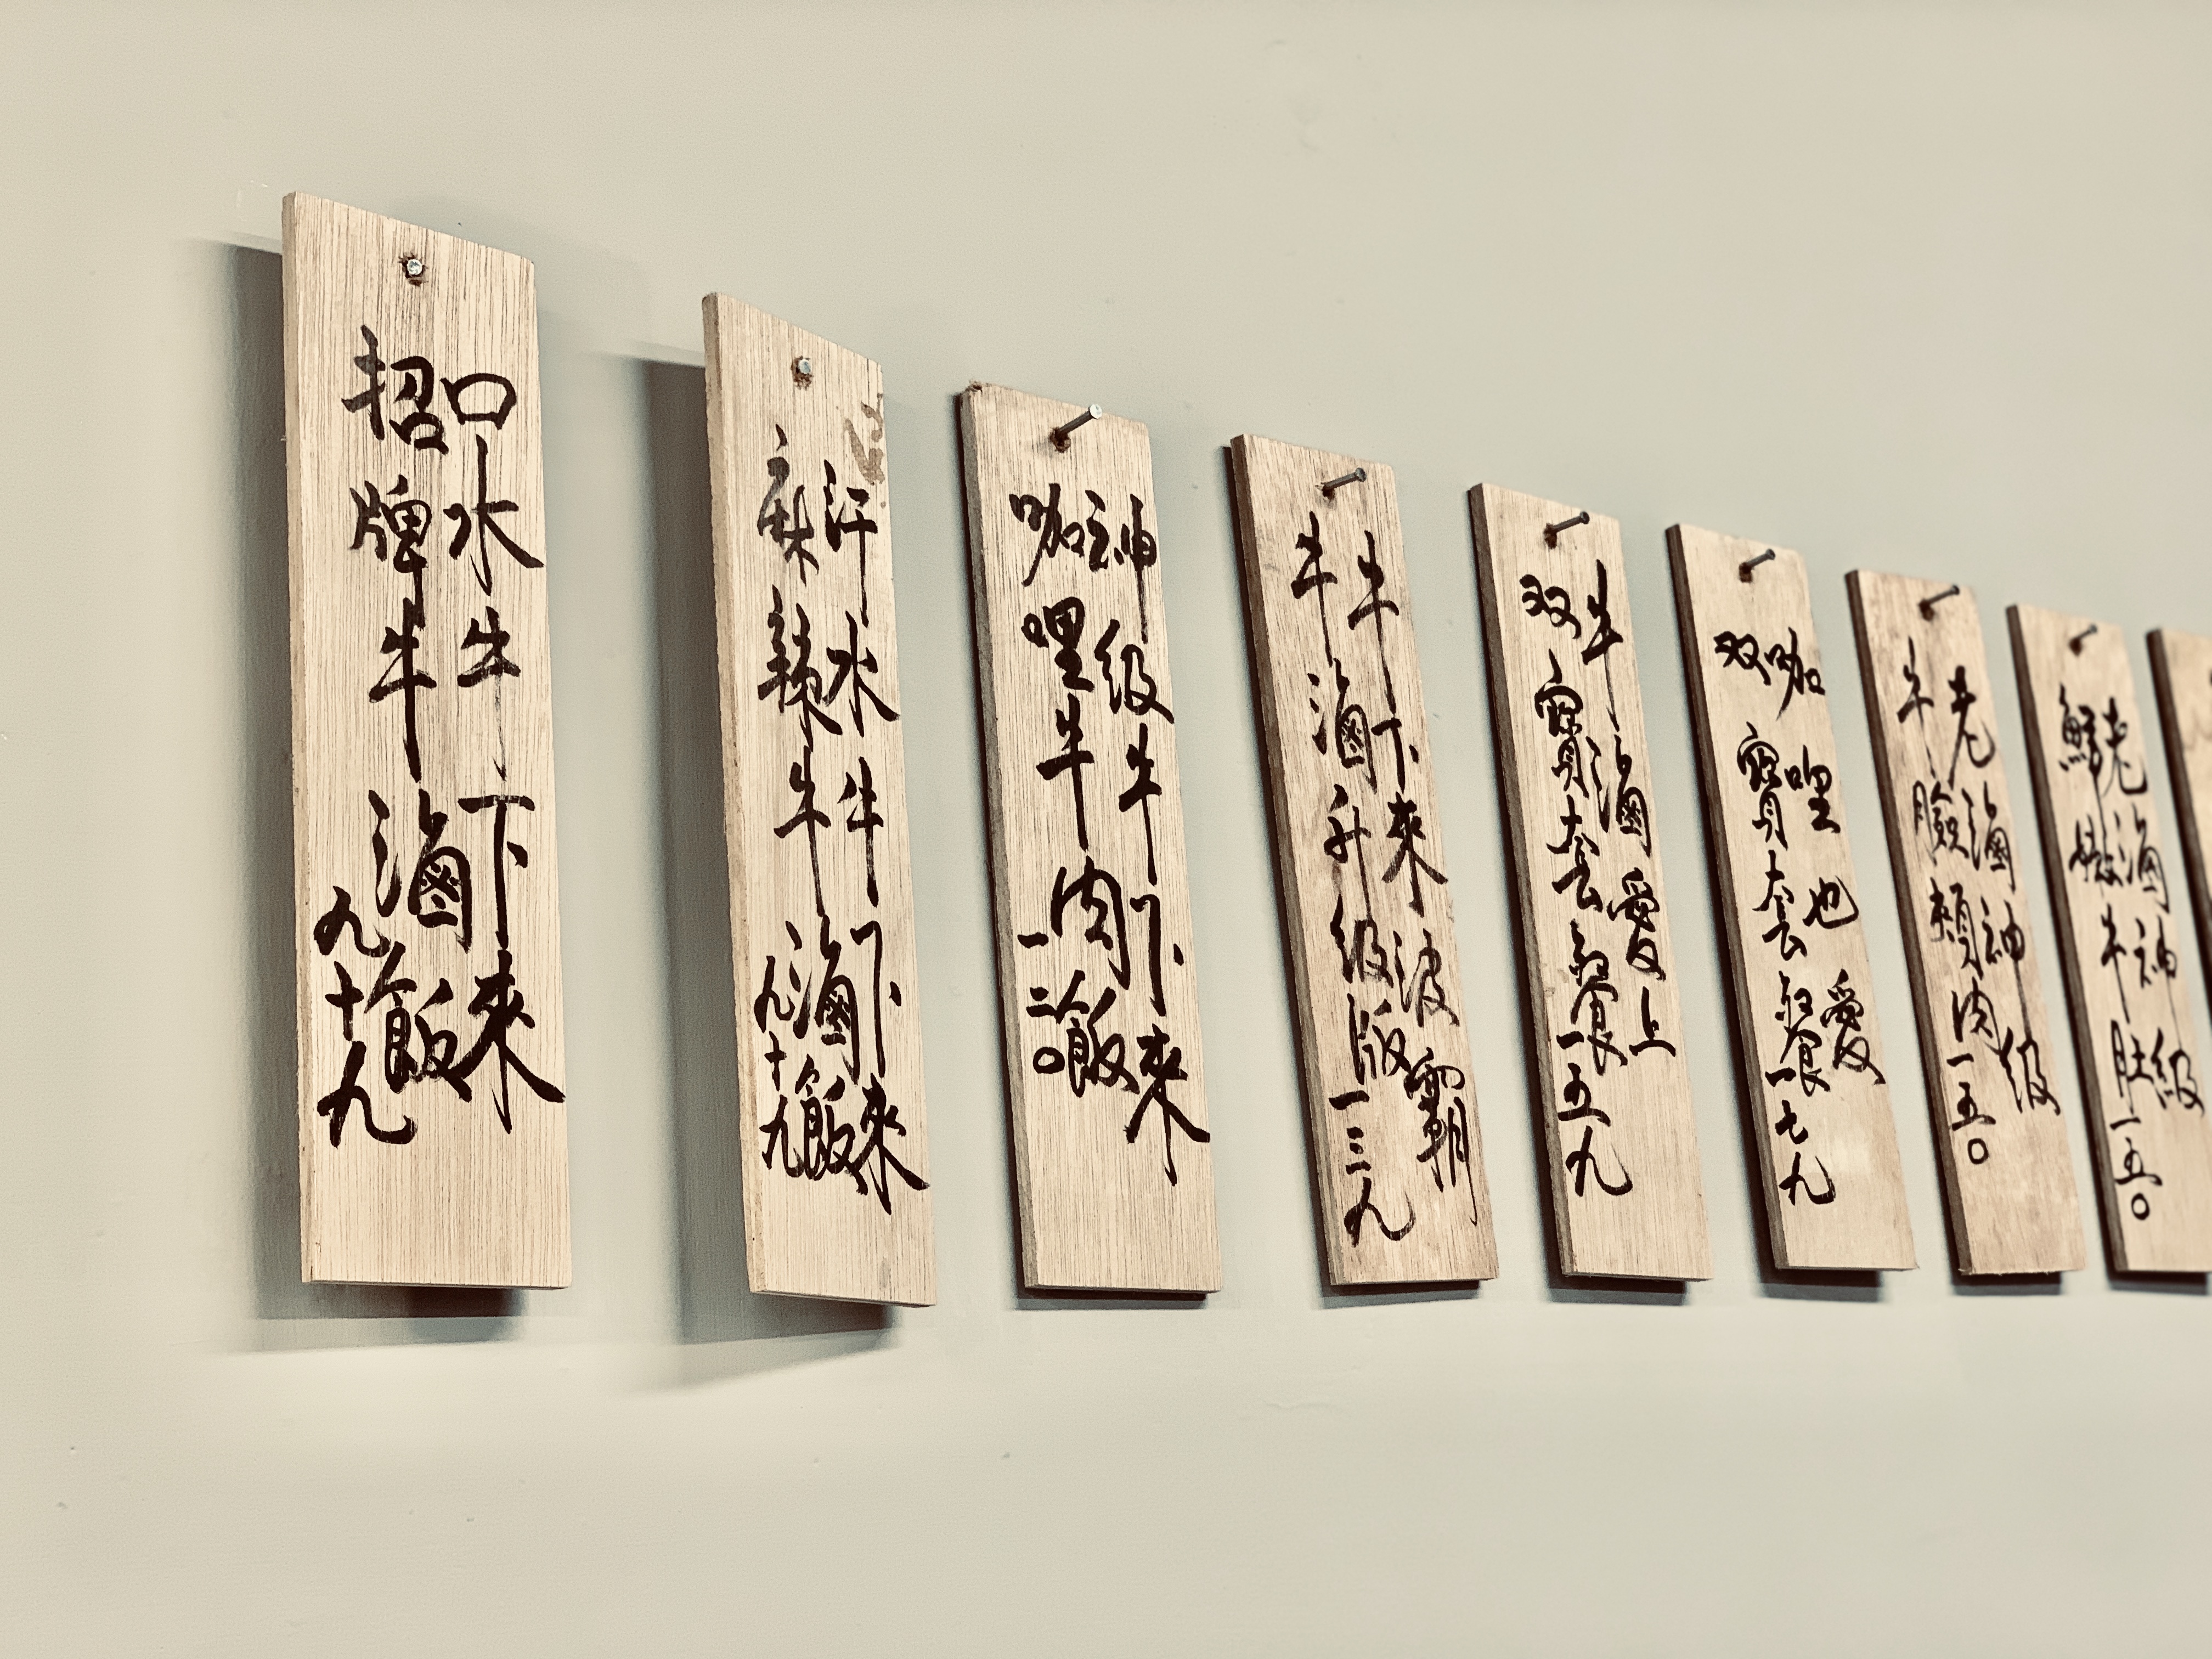 口水牛下來
招牌牛滷飯
九十九
汗水牛下來
麻辣牛滷飯
九十九
神級牛下來
咖哩牛肉飯
一二〇
牛下來波霸
牛滷升級版一三九
牛滷愛上
双寶套餐一五九
咖哩也愛
双寶套餐一七九
老滷神級
牛臉頰肉一五〇
老滷神級
鮮嫩牛肚一五〇